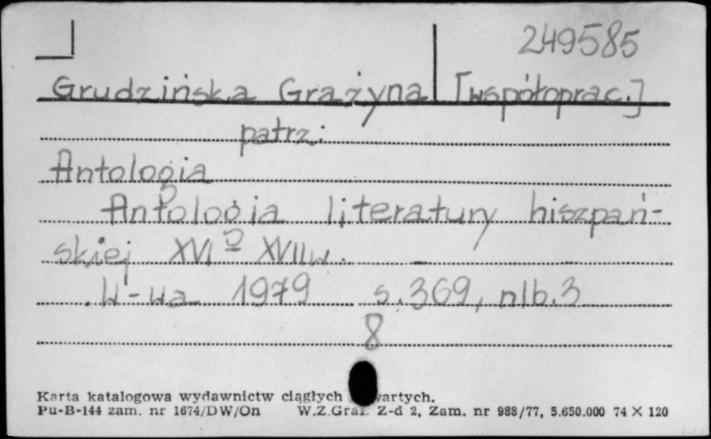 249585
Grudzińska Grażyna [współoprac.]
patrz:
Antologia
Antologia literatury hiszpań-
skiej XVI - XVII w.
W-wa 1979 s. 369, nlb. 3
8
Karta katalogowa wydawnictw ciągłych wartych.
Pu-B-144 zam. nr 1674/DW/On W.Z.Graf. Z-d 2, Zam. nr 988/77, 5.650.000 74 X 120